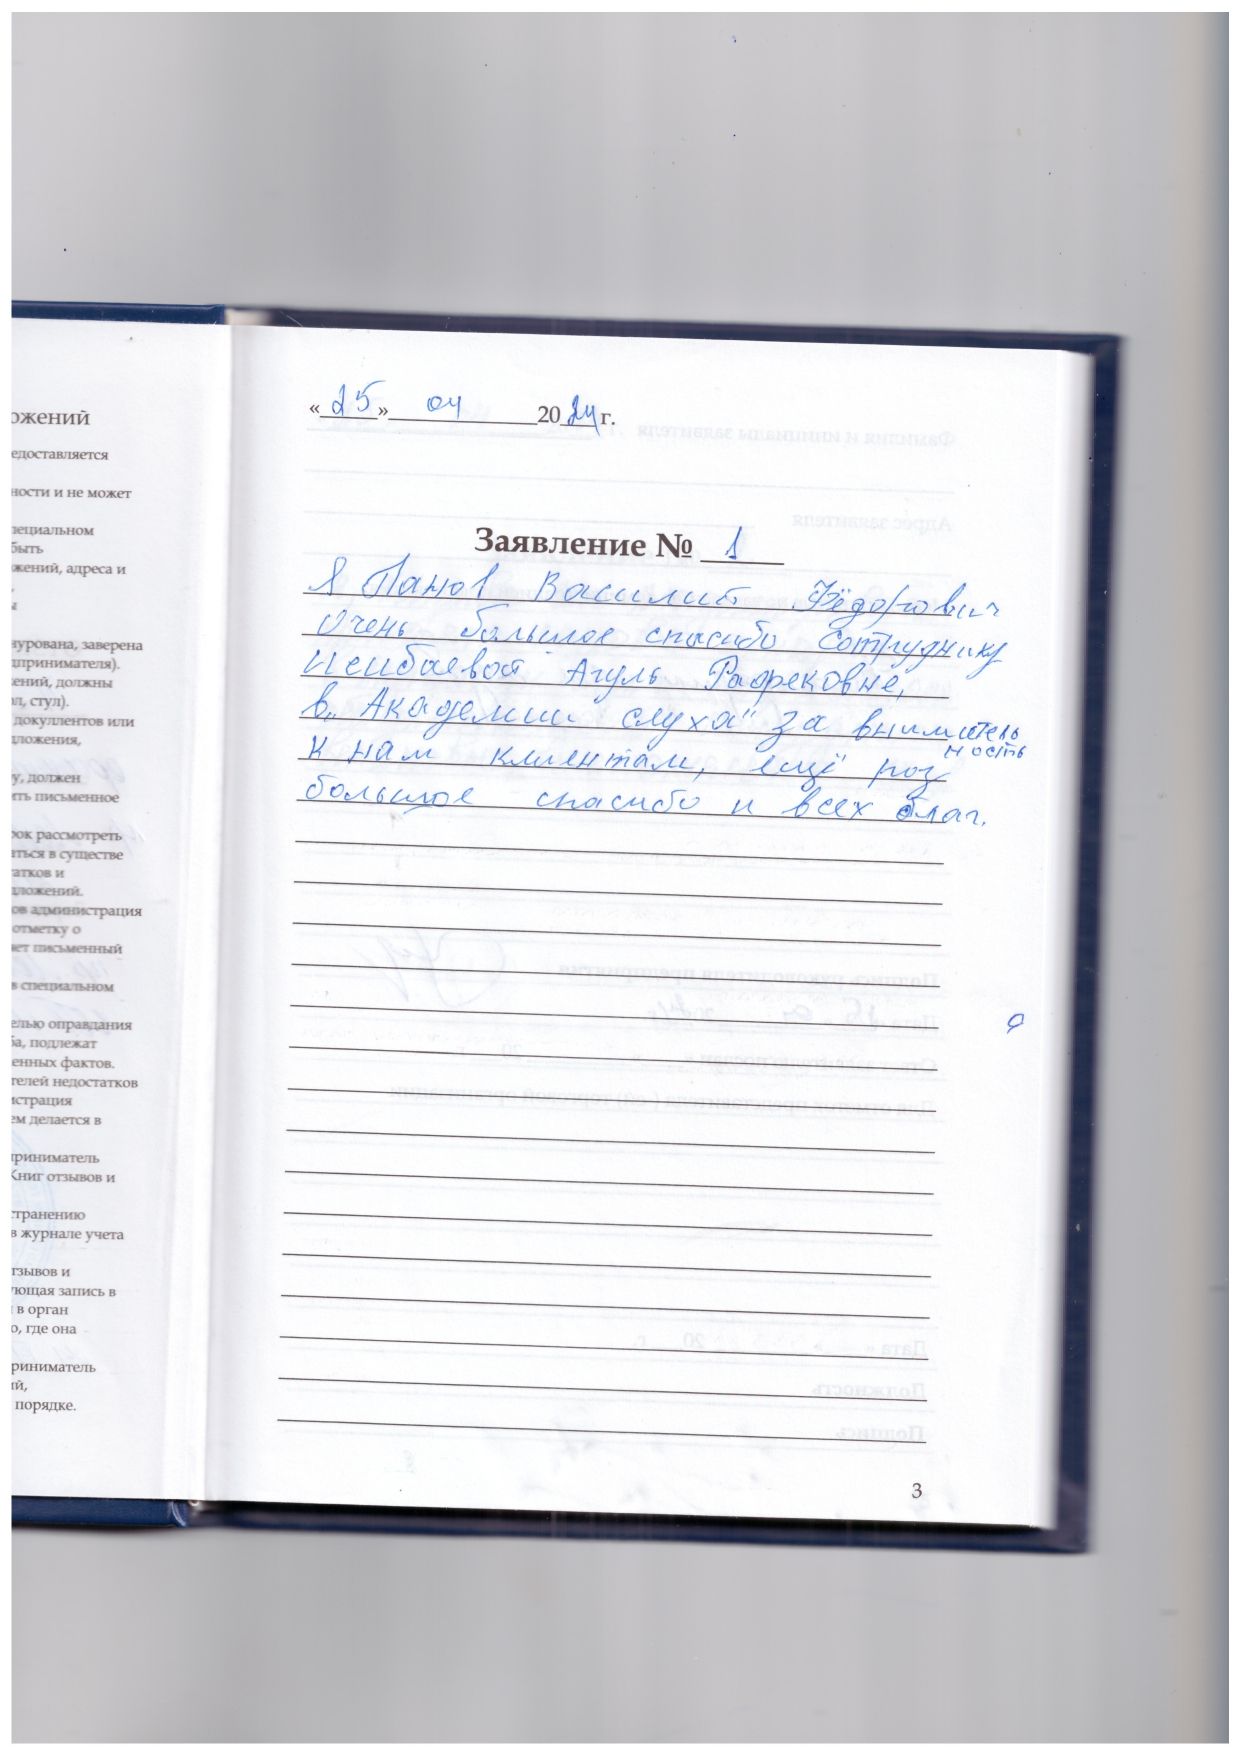 ожений
едоставляется
ности и не может
пециальном
быть
жений, адреса и
нурована, заверена
дпринимателя).
ений, должны
ол, стул).
докуллентов или
дложения,
у, должен
ить письменное
рок рассмотреть
аться в существе
атков и
дложений.
ов администрация
отметку о
ет письменный
в специальном
елью оправдания
ба, подлежат
енных фактов.
телей недостатков
истрация
ем делается в
приниматель
Книг отзывов и
странению
в журнале учета
тзывов и
ующая запись в
в орган
о, где она
риниматель
ий,
порядке.
«25» 04 2024 г.
Заявление № 1
Я Панов Василий Фёдорович
Очень большое спасибо сотруднику
Агуль
в "Академии слуха" за вниматель
ность
к нам клиентам, ещё раз
большое спасибо и всех благ.
3